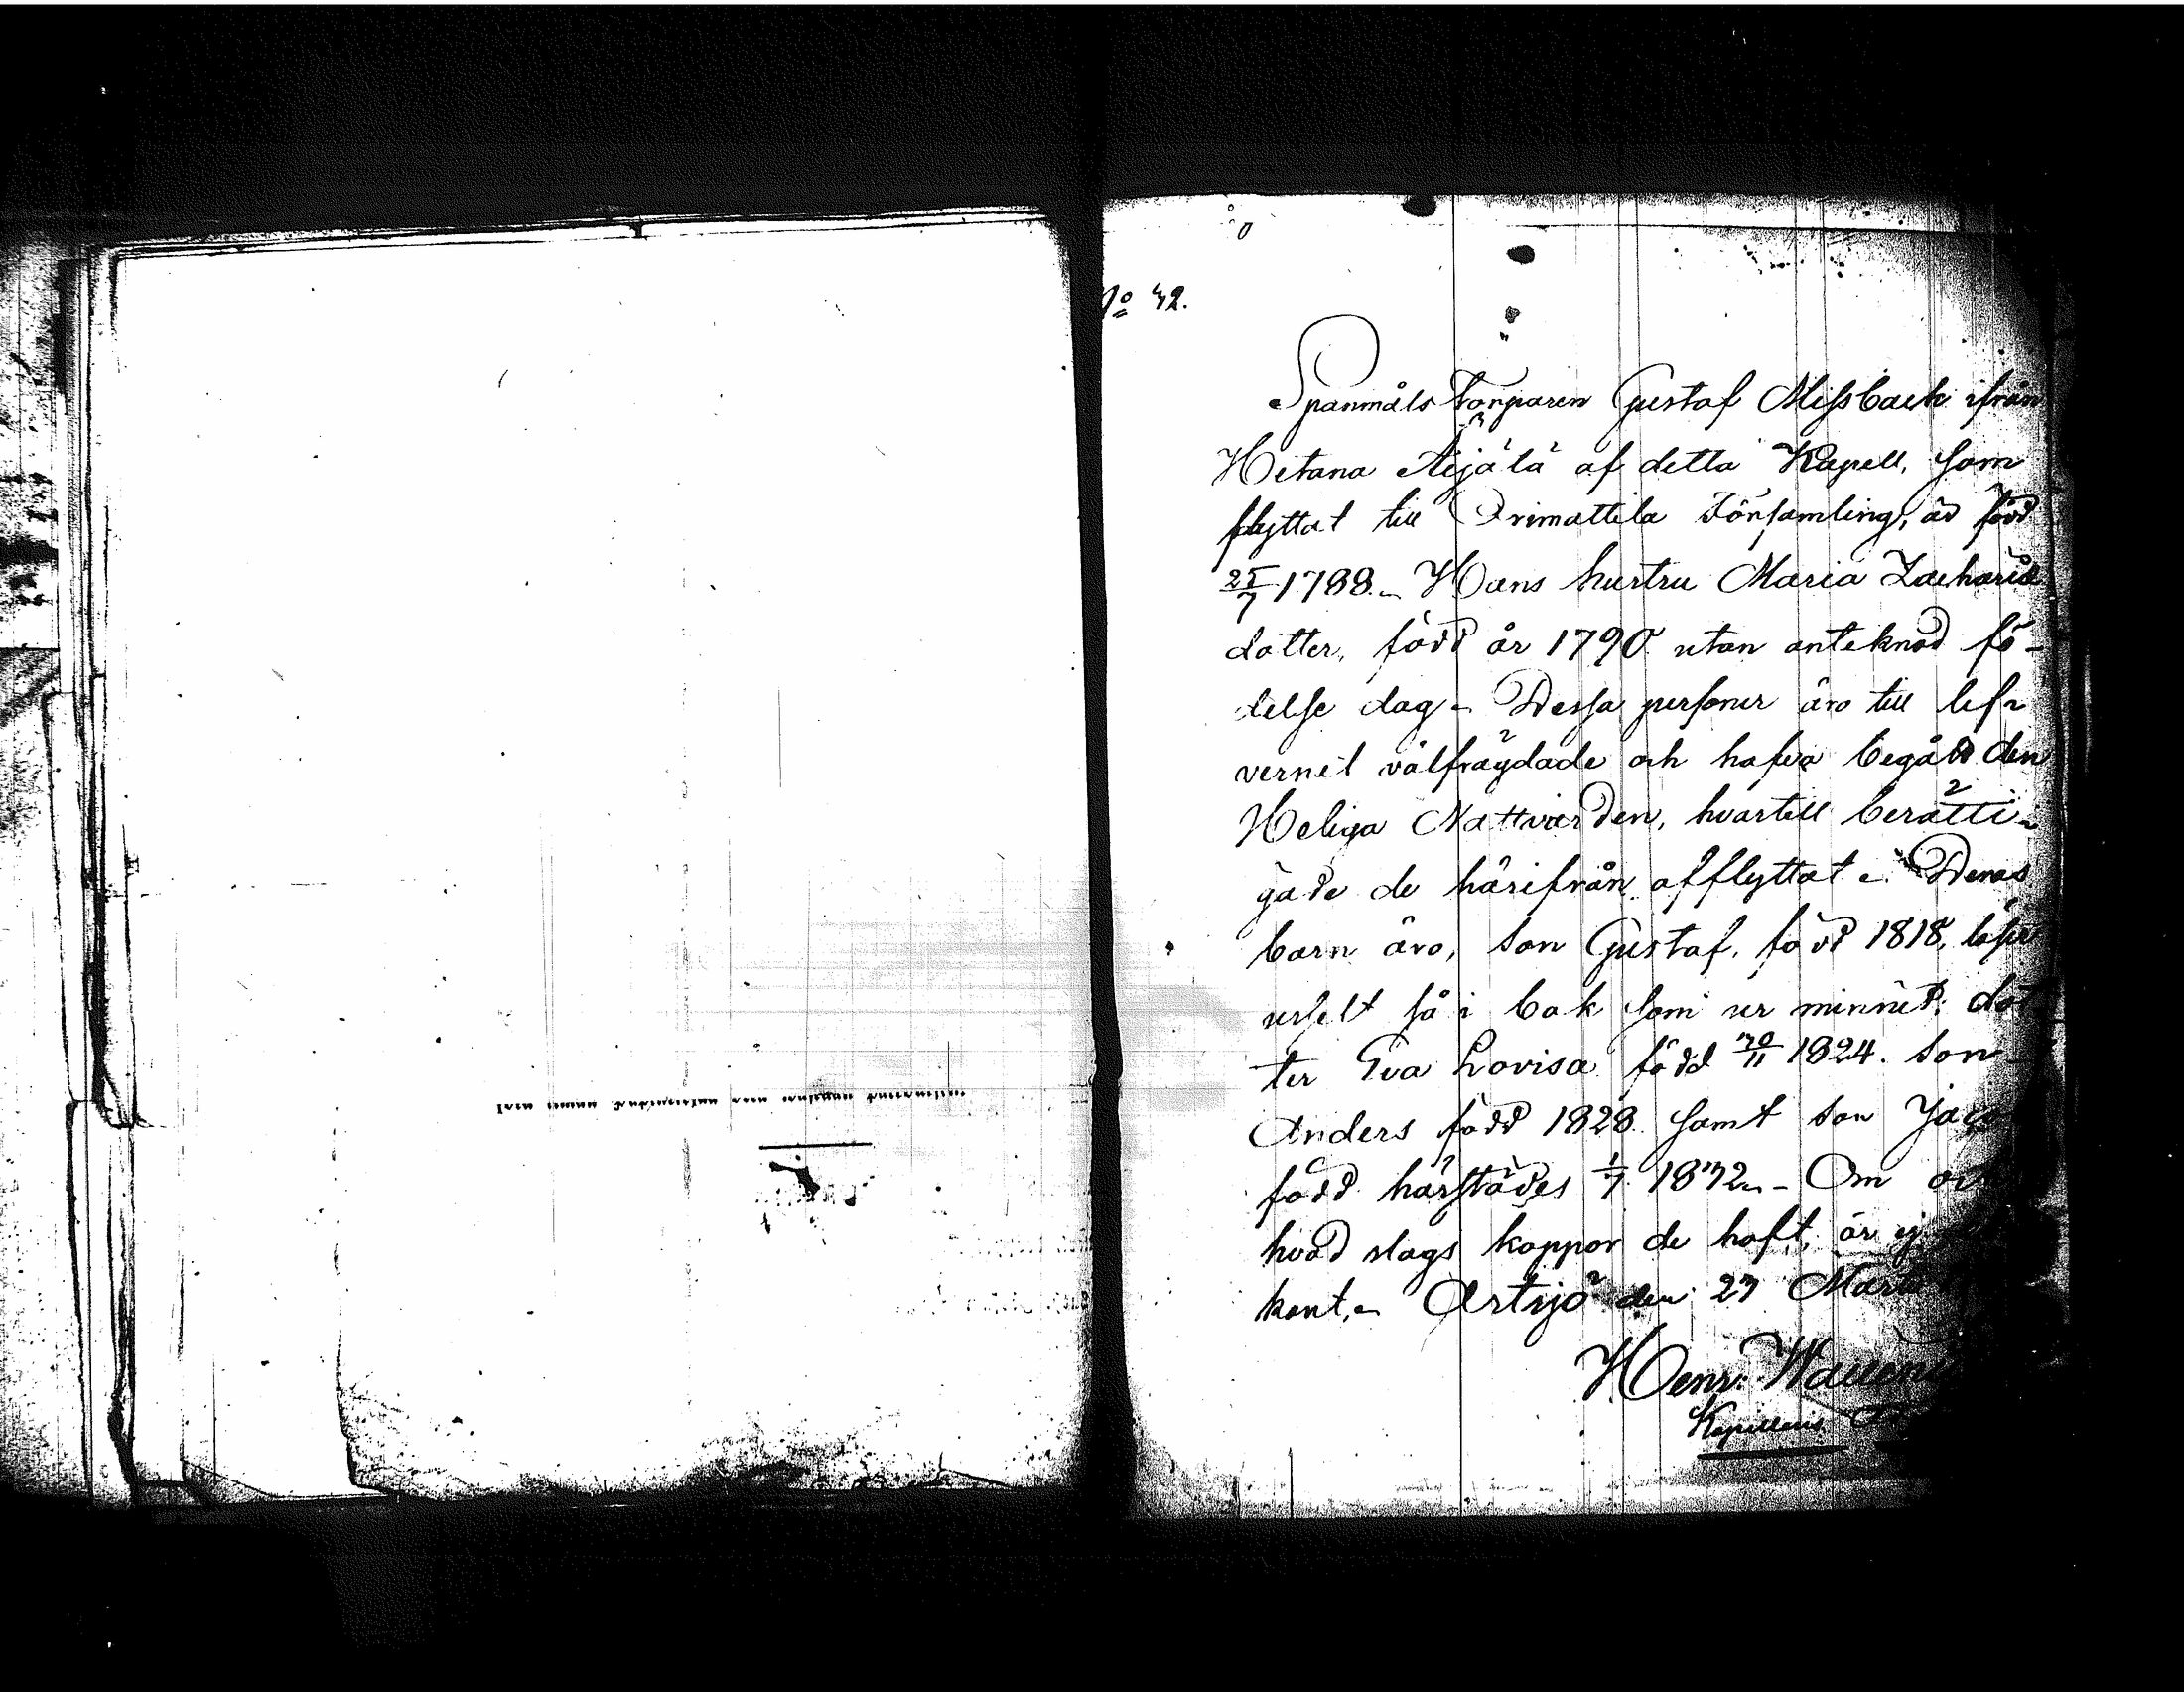 No 32.
Spanmåls Torparen Gustaf Missback ifrån
Hetana Äijälä af detta Kapell, som
flyttat till Orimattila Församling, är född
25/7 1788. – Hans hustru Maria Zacharie
dotter, född år 1790 utan anteknad fö-
delse dag – Dessa personer äro till lef-
vernet välfrägdade och hafva begådt den
Heliga Nattvarden, hvartill berätti-
gade de härifrån afflyttat – Deras
barn äro, son Gustaf, född 1818, läser
uselt så i bok som ur minnet; dot
ter Eva Lovisa född 30/11 1824. son
Anders född 1828 samt son Jaco
född härstädes 1/7 1832 – Om och
hvad slags koppor de haft, är ej
kant. – Artsjö den 27 Martii
Henr. Walleni
Kapellans